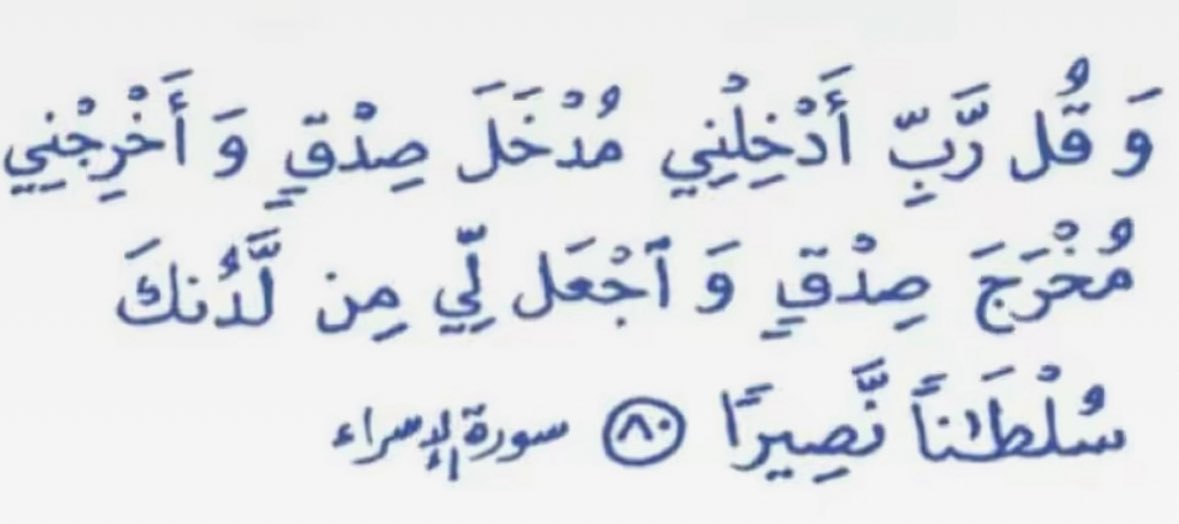 وَ قُل رَّبِّ أَدْخِلْنِي مُدْخَلَ صِدْقٍ وَ أَخْرِجْنِي
مُخْرَجَ صِدْقٍ وَ ٱجْعَل لِّي مِن لَّدُنكَ
سُلْطَٰنًا نَّصِيرًا ٨٠ سورة الإسراء